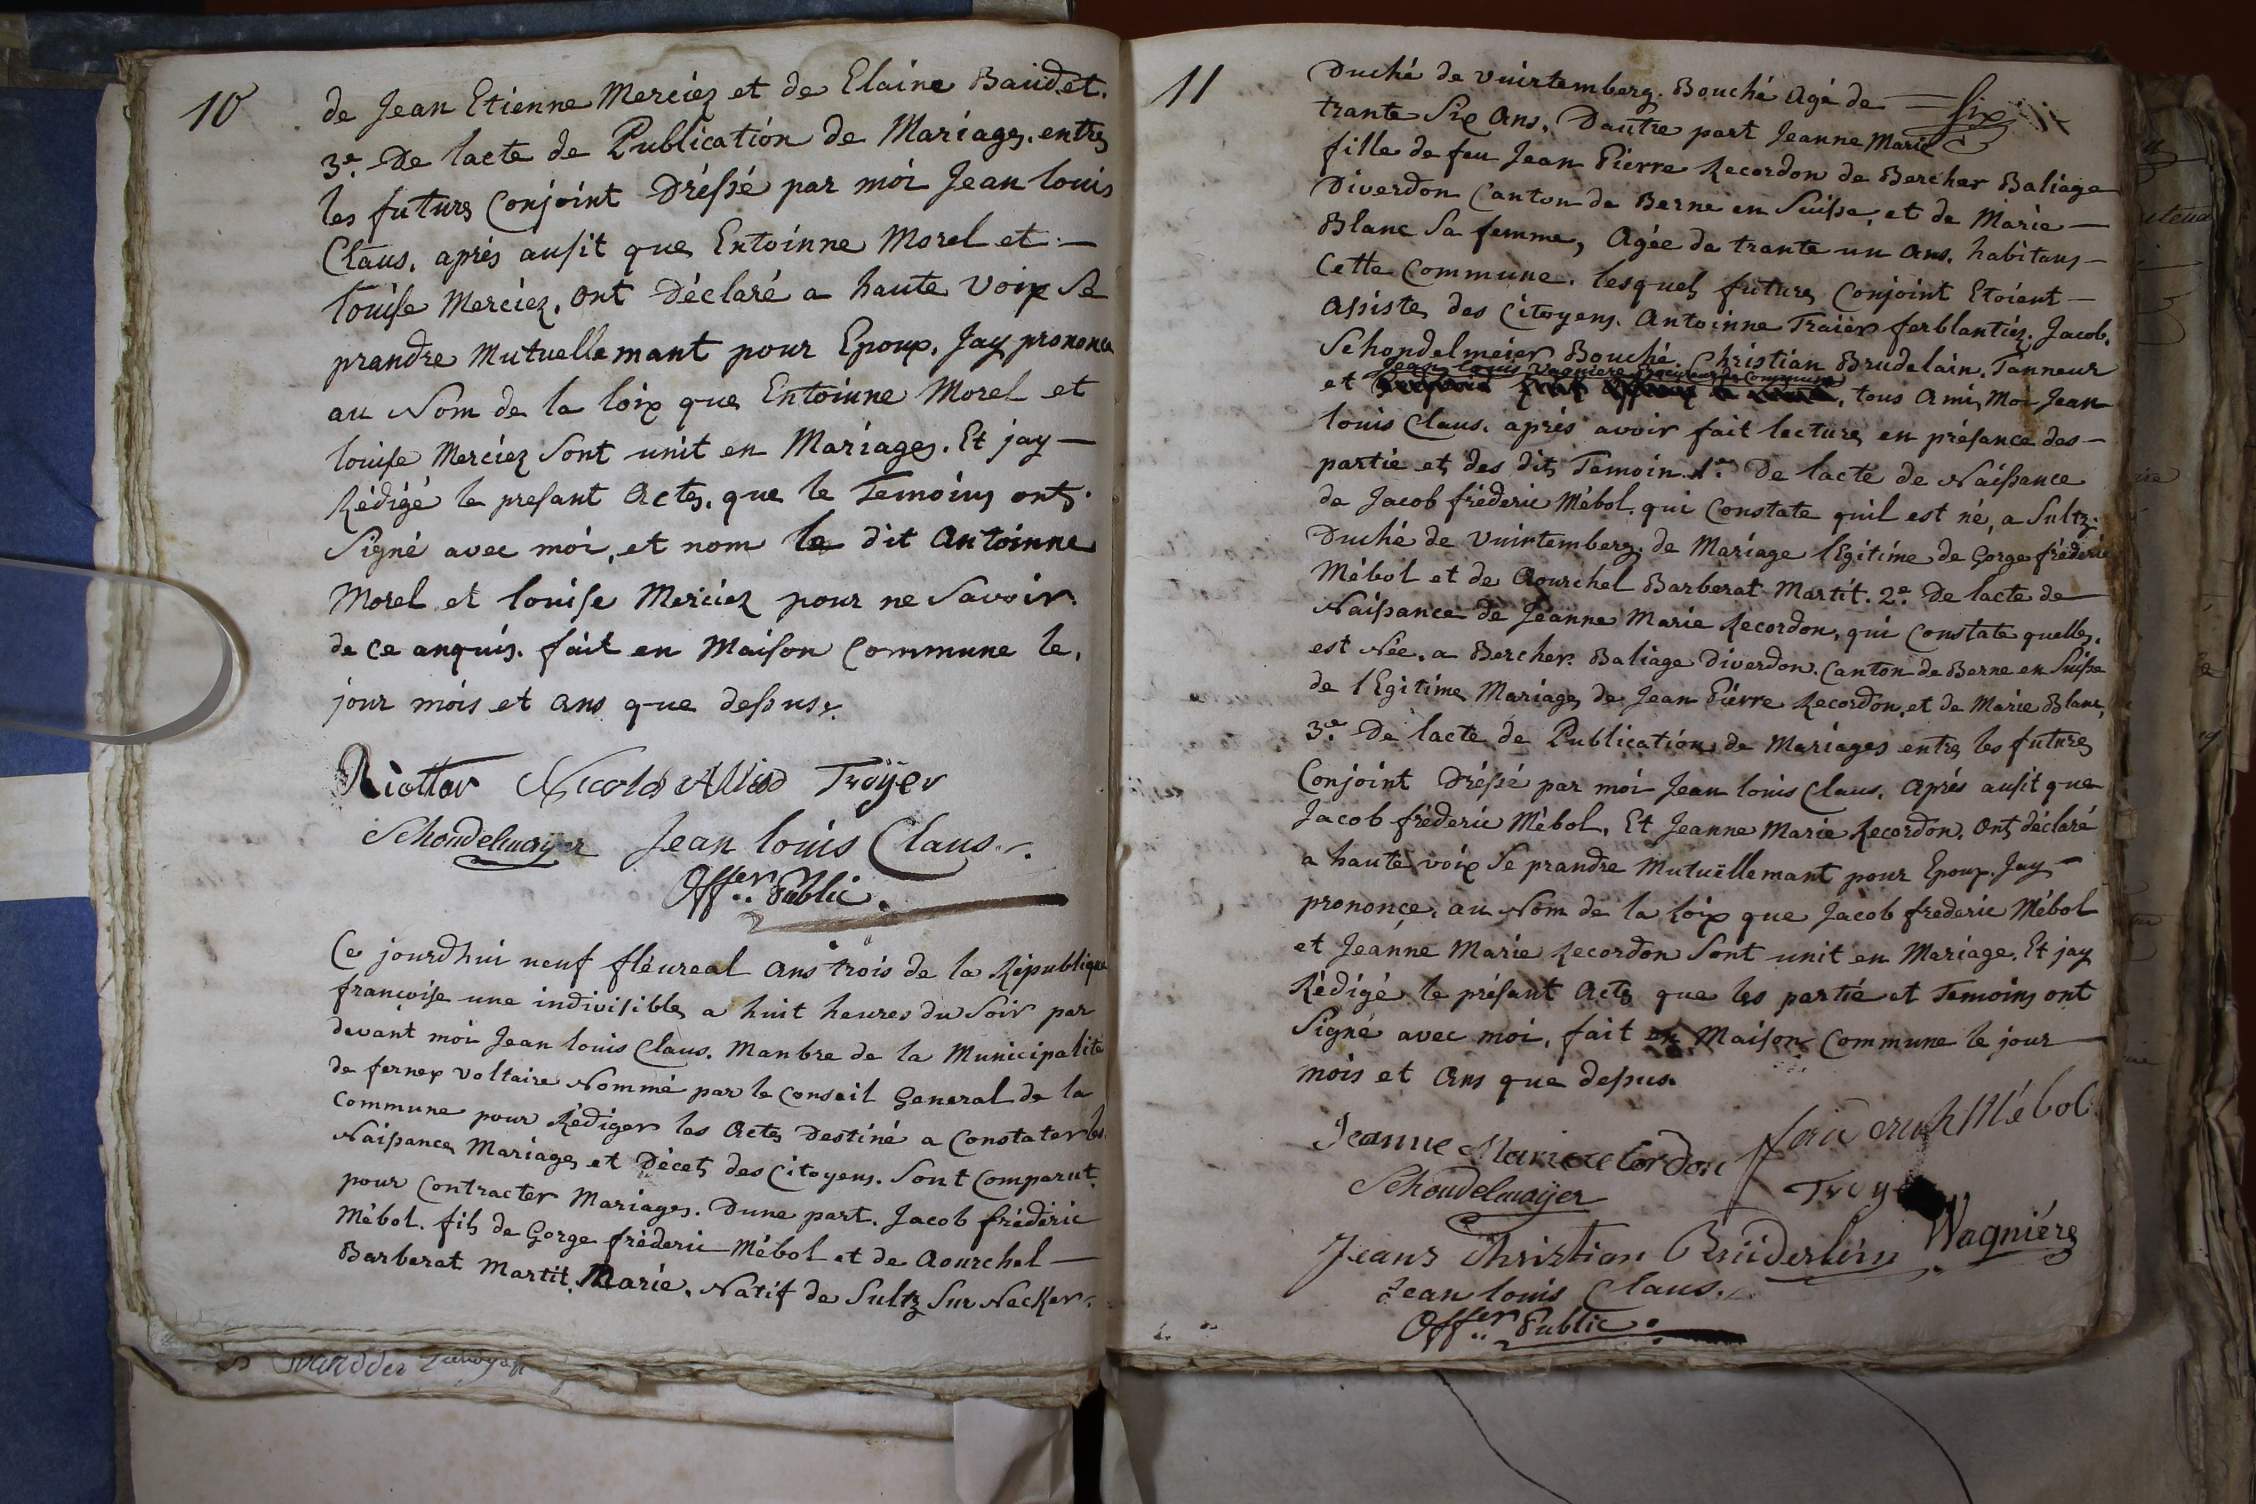 10
de Jean Etienne Merciez et de Elaine Baüdet.
3.e De lacte de Publication de Mariages. entres
les futurs Conjoint Dréssé par moi Jean louis
Claus, aprés ausit que Entoinne Morel et —
louise Merciez. ont Déclaré a haute voix Se
prandre Mutuellemant pour Epoux. Jay prononcé
au Nom de la loix que Entoinne Morel et
louise Merciez Sont unit en Mariages. Et jay —
Rédigé le presant Actes. que le Temoins onts
Signé avec moi, et nom le dit Antoinne
Morel et louise Merciez pour ne Savoir.
de ce anquis. fait en Maison Commune le,
jour mois et ans que dessus.
Riotter Nicolas Troÿer
Schondelmaÿer Jean louis Claus.
Off.er Public.
Ce jourdhui neuf fléureal ans trois de la République
françoise une indivisibles a huit heures du Soir par
devant moi Jean louis Claus. Manbre de la Municipalité
de fernex voltaire Nommé par le Conseil General de la
Commune pour Rédiger les Actes Destiné a Constater les
Naissances Mariages et Décets des Citoyens. Sont Comparut.
pour Contracter Mariages. Dune part. Jacob fréderic
Mébol. fils de Gorge fréderic Mébol et de Aourchel —
Barberat Martit. Marie. Natif de Sultz Sur Necker.
11
Duché de vuirtemberg. Bouché Agé de — Six
trante Six Ans. Dautre part Jeanne Marie
fille de feu Jean Pierre Recordon de Bercher Baliage
Diverdon Canton de Berne en Suisse et de Marie —
Blanc Sa femme, Agée de trante un Ans. habitans —
Cette Commune. lesquels futures Conjoint Etoient —
Assistes des Citoyens. Antoinne Traier ferblantiez. Jacob.
Schondelmeier Bouché. Christian Brudelain. Tanneur
Jean louis Vagniere Procureur de Commune
et tous Ami, Moi Jean
louis Claus. aprés avoir fait lectures en présance des —
partie et des dits Temoin. 1.e De lacte de Naissance
de Jacob fréderic Mébol. qui Constate quil est né, a Sultz.
Duché de Vuirtemberg. de Mariage lEgitime de Gorge fréderic
Mébol et de Aourchel Barberat Martit. 2.e De lacte de —
Naissance de Jeanne Marie Recordon, qui Constate quelles.
est Née. a Bercher. Baliage Diverdon. Canton de Berne en Suisse
de lEgitime Mariages de Jean Piérre Recordon, et de Marie Blanc,
3.e De lacte de Publication de Mariages entres les futures
Conjoint Dréssé par moi Jean louis Claus. Aprés ausit que
Jacob fréderic Mébol. Et Jeanne Marie Recordon. Onts déclaré
a haute voix Se prandre Mutuëllemant pour Epoux. Jay —
prononcé, au Nom de la loix que Jacob frederic Mébol
et Jeanne Marie Recordon Sont unit en Mariage. Et jay
Rédigé le présant Actes que les partié et Temoins ont
Signé avec moi, fait en Maison Commune le jour —
mois et Ans que dessus.
Jeanne Marie recordon Mébol
Schondelmaÿer Troy
Jeans Christian Brüderlin Wagniére
Jean louis Claus.
Off.er Public.